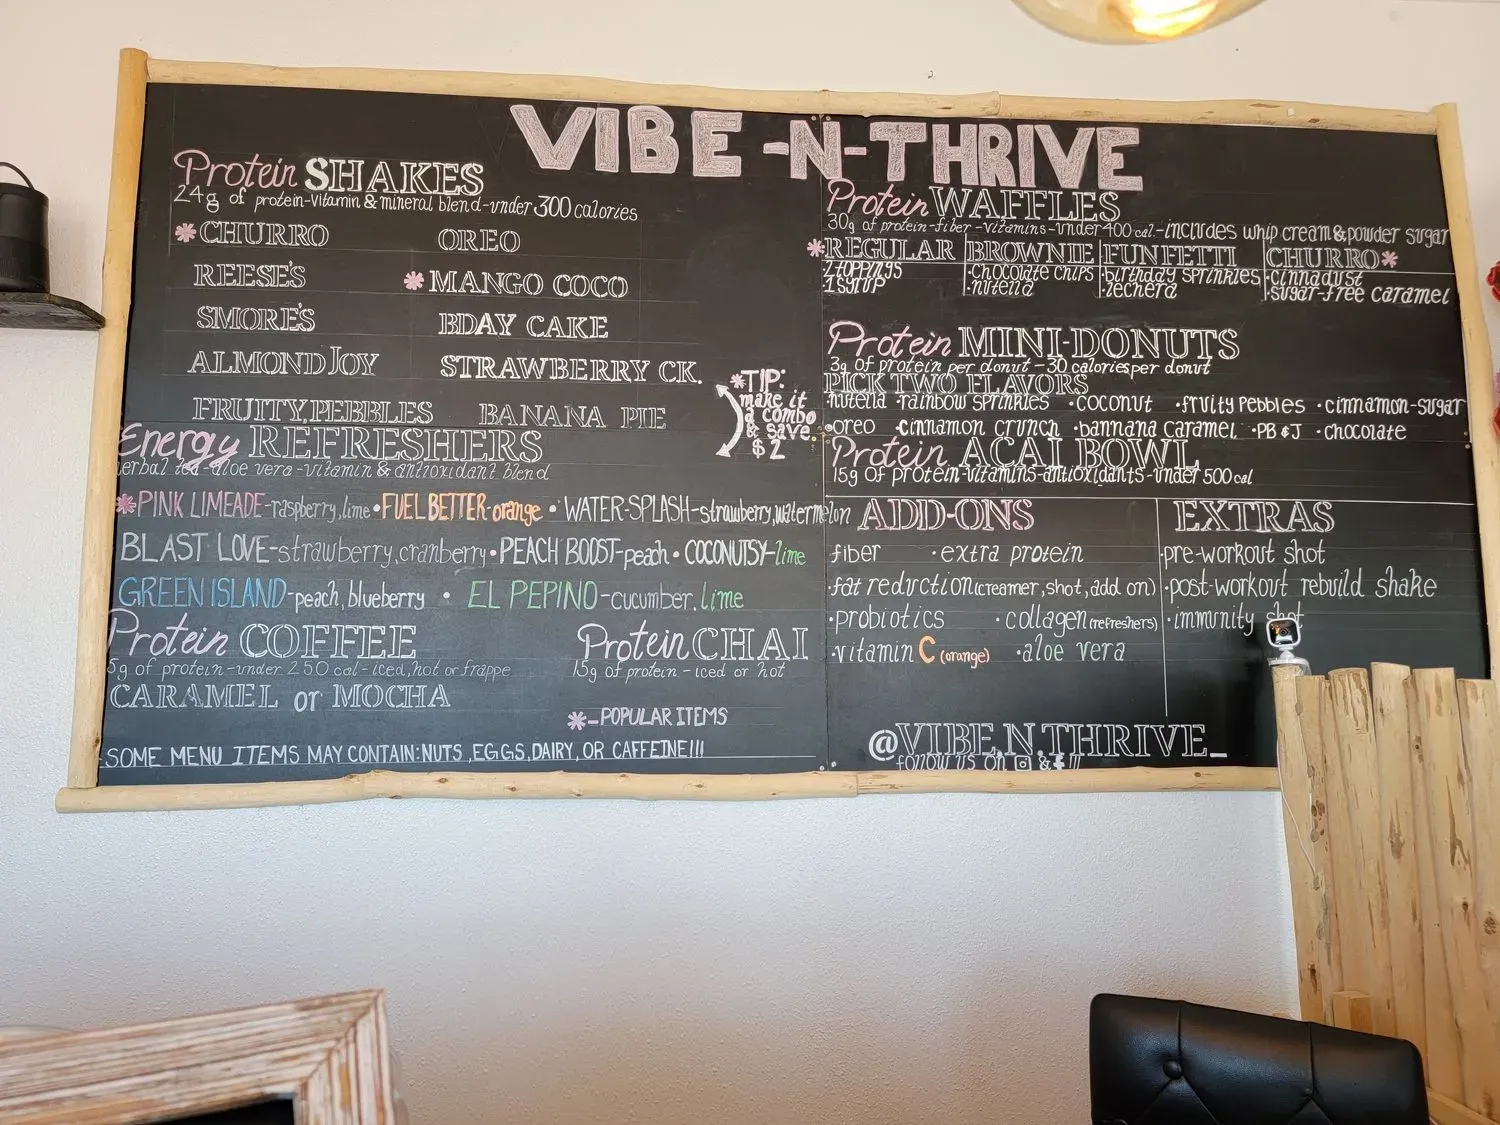 VIBE-N-THRIVE
Protein SHAKES
24g of protein-vitamin & mineral blend-under 300 calories
*CHURRO OREO
REESE'S *MANGO COCO
SMORE'S BDAY CAKE
ALMOND JOY STRAWBERRY CK.
FRUITY PEBBLES BANANA PIE
*TIP:
make it
a combo
& save
$2
Energy REFRESHERS
erbal tea-aloe vera-vitamin & antioxidant blend
*PINK LIMEADE-raspberry, lime •FUEL BETTER-orange •WATER-SPLASH-strawberry, watermelon
BLAST LOVE-strawberry, cranberry •PEACH BOOST-peach •COCONUTSY-lime
GREEN ISLAND-peach, blueberry • EL PEPINO-cucumber, lime
Protein COFFEE
5g of protein-under 250 cal-iced, hot or frappe
CARAMEL or MOCHA
Protein CHAI
15g of protein-iced or hot
*-POPULAR ITEMS
SOME MENU ITEMS MAY CONTAIN: NUTS, EGGS, DAIRY, OR CAFFEINE!!!
Protein WAFFLES
30g of protein-fiber-vitamins-under 400 cal-includes whip cream & powder sugar
*REGULAR BROWNIE FUNFETTI CHURRO*
2 TOPPINGS •chocolate chips •birthday sprinkles •cinnadust
1 SYRUP •nutella •lechera •sugar-free caramel
Protein MINI-DONUTS
3g of protein per donut-30 calories per donut
PICK TWO FLAVORS
•nutella •rainbow sprinkles •coconut •fruity pebbles •cinnamon-sugar
•oreo •cinnamon crunch •bannana caramel •PB&J •chocolate
Protein ACAI BOWL
15g of protein-vitamins-antioxidants-under 500 cal
ADD-ONS
fiber •extra protein
•fat reduction (creamer, shot, add on)
•probiotics •collagen (refreshers)
•vitamin C (orange) •aloe vera
EXTRAS
•pre-workout shot
•post-workout rebuild shake
•immunity shot
@VIBE.N.THRIVE_
follow us on & !!!